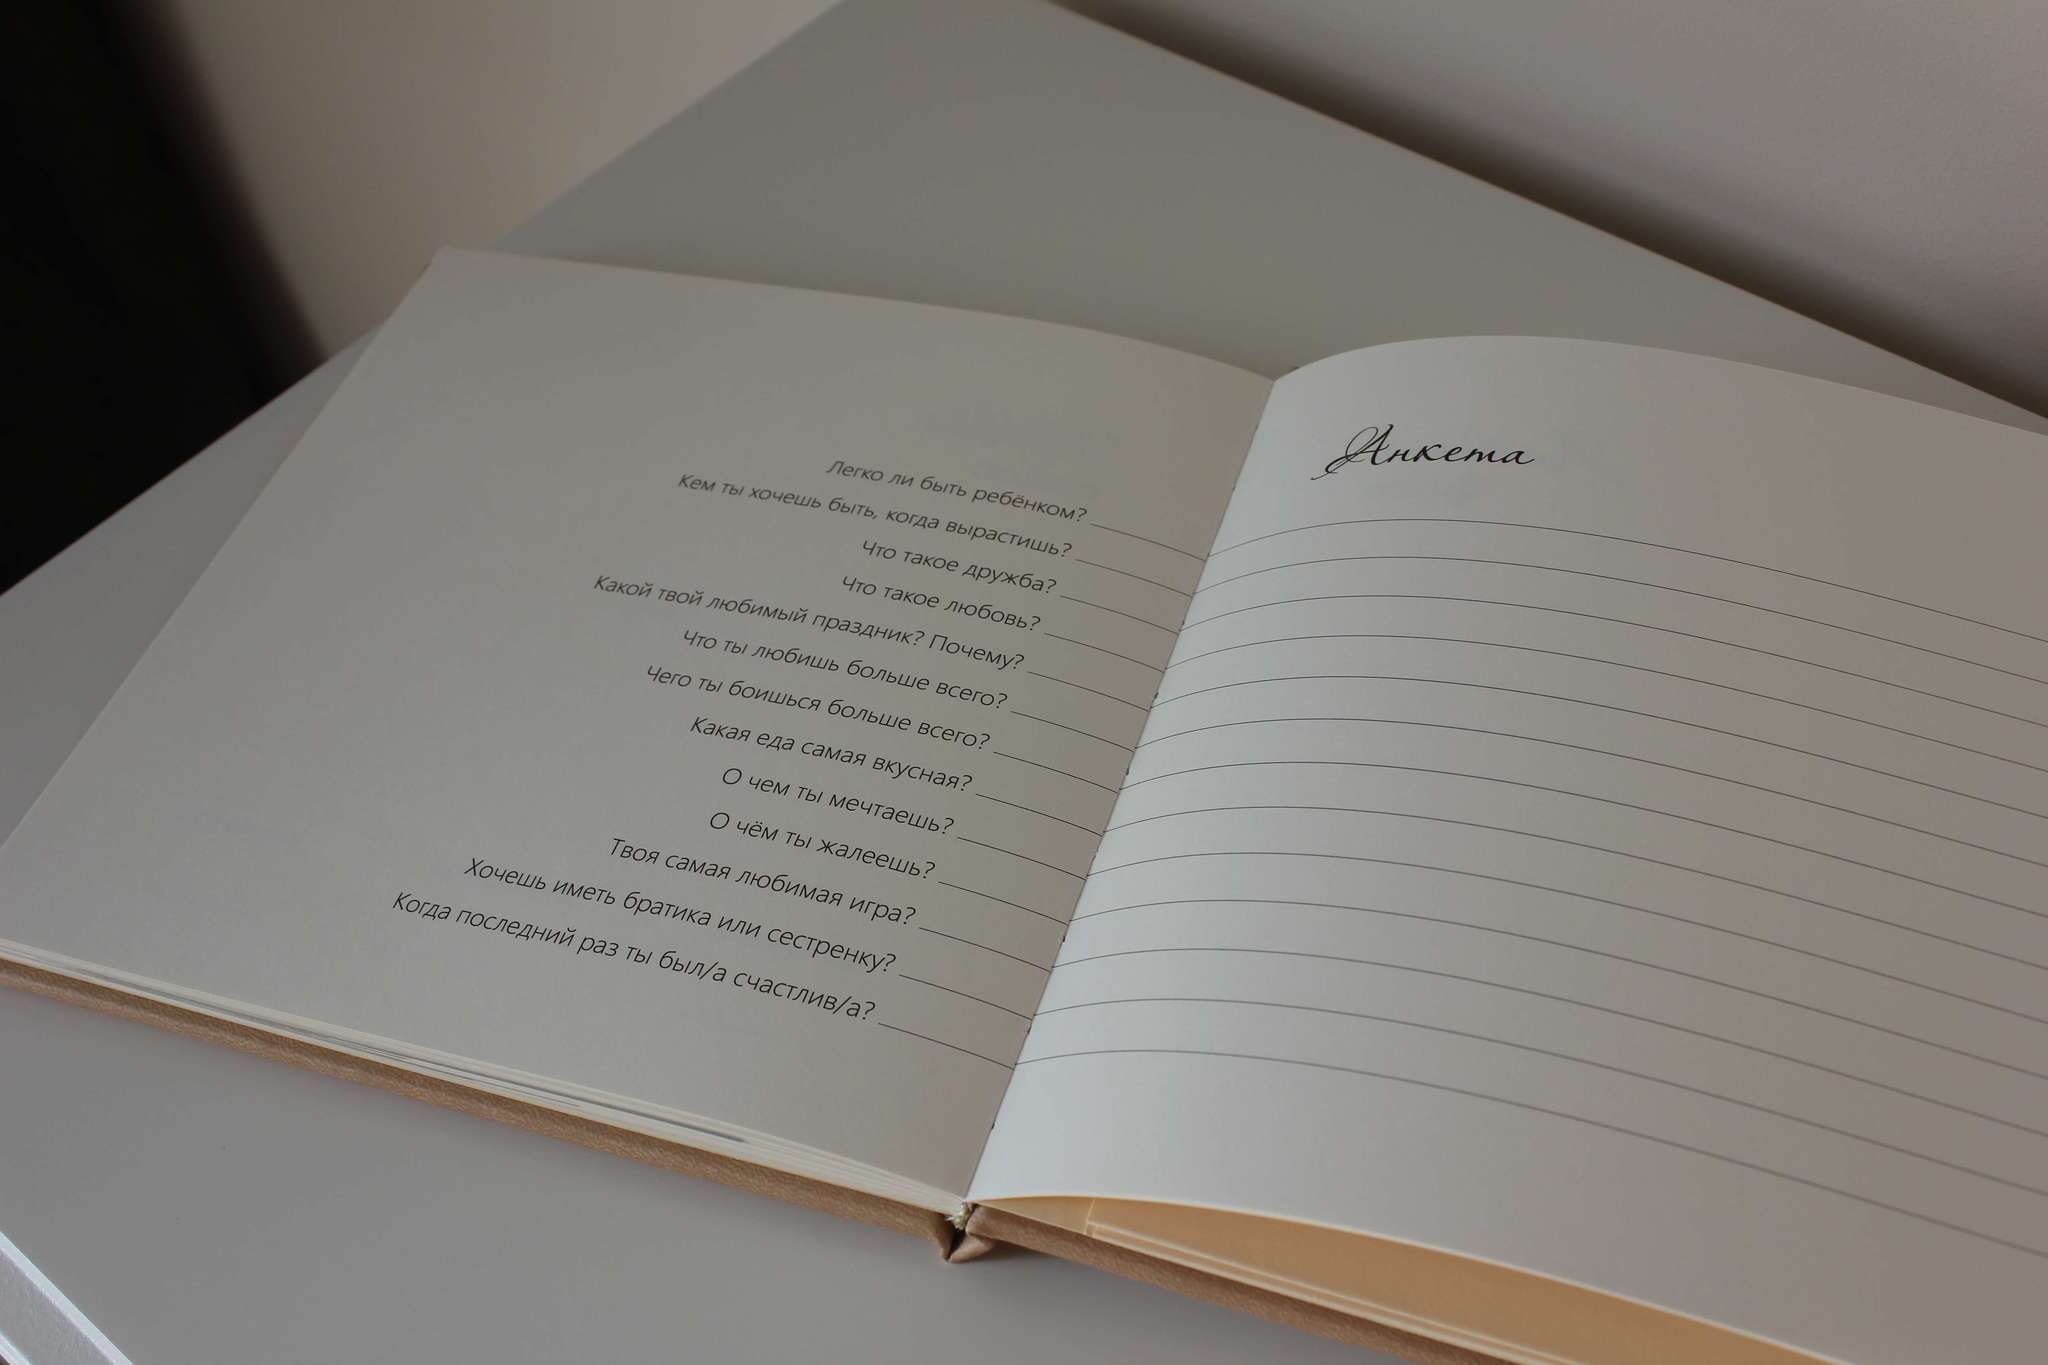 Легко ли быть ребёнком?
Кем ты хочешь быть, когда вырастишь?
Что такое дружба?
Что такое любовь?
Какой твой любимый праздник? Почему?
Что ты любишь больше всего?
Чего ты боишься больше всего?
Какая еда самая вкусная?
О чем ты мечтаешь?
О чём ты жалеешь?
Твоя самая любимая игра?
Хочешь иметь братика или сестренку?
Когда последний раз ты был/а счастлив/а?
Анкета